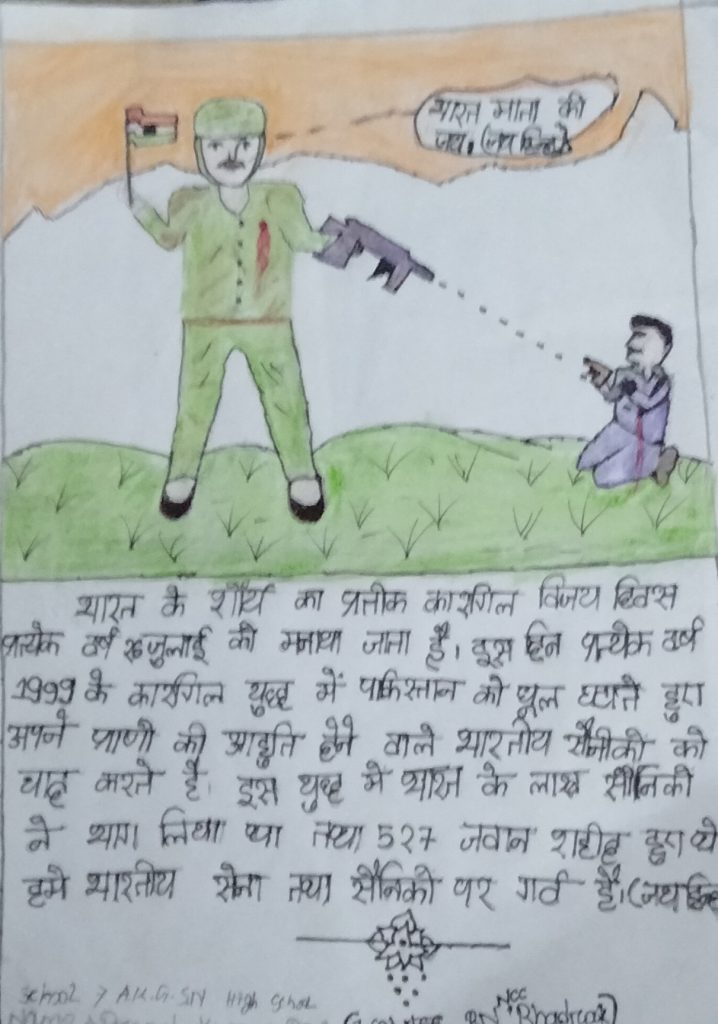 भारत माता की
जय। (जय हिन्द)
भारत के शौर्य का प्रतीक कारगिल विजय दिवस
प्रत्येक वर्ष 26 जुलाई को मनाया जाता है। इस दिन प्रत्येक वर्ष
1999 के कारगिल युद्ध में पाकिस्तान को धूल चटाते हुए
अपने प्राणो की आहुति देने वाले भारतीय सैनीको को
याद करते है। इस युद्ध मे भारत के लाख सैनिको
ने भाग लिया था तथा 527 जवान शहीद हुए थे
हमे भारतीय सेना तथा सैनिको पर गर्व है। (जय हिन्द
School → A.K.G.SIN High School
NCC
BN Bhadrak)